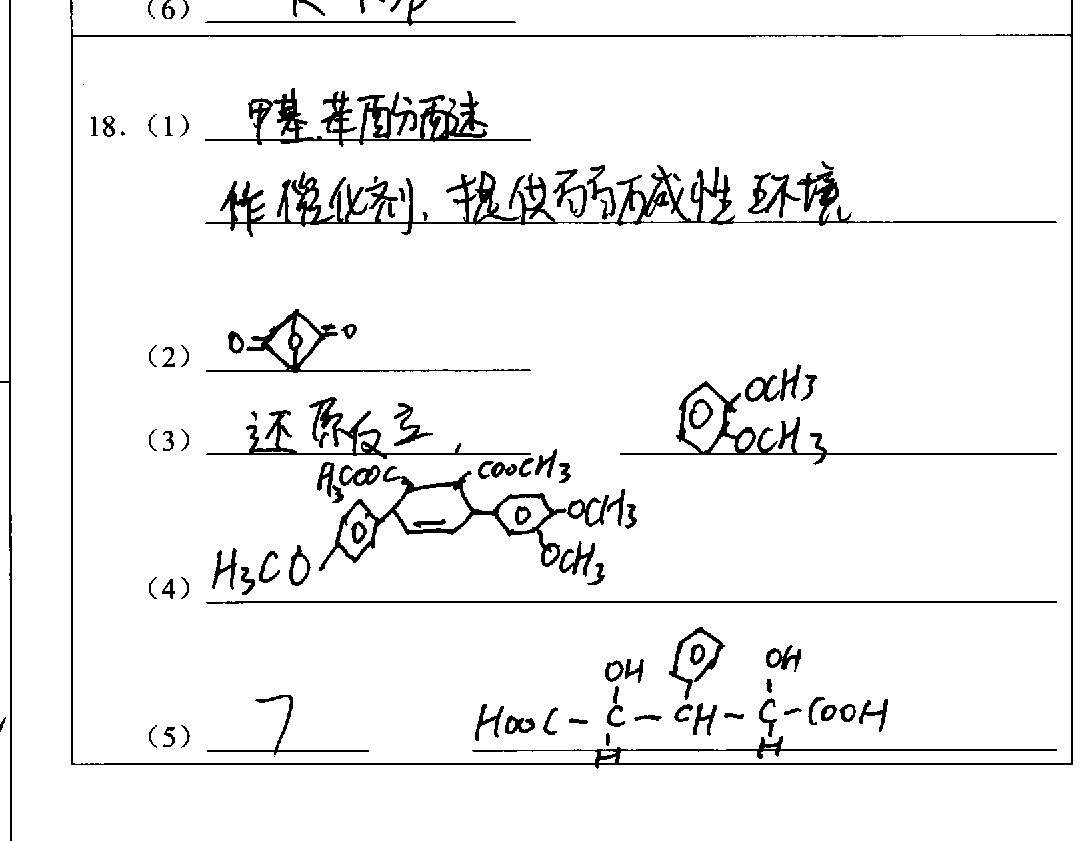 (6)
18. (1) 甲基苯酚分醚
作催化剂, 提供弱碱性环境
(2) O= =O
(3) 还原反应, OCH3
OCH3
H3COOC COOCH3
OCH3
OCH3
(4) H3CO
OH OH
(5) 7 HOOC-C-CH-C-COOH
H H